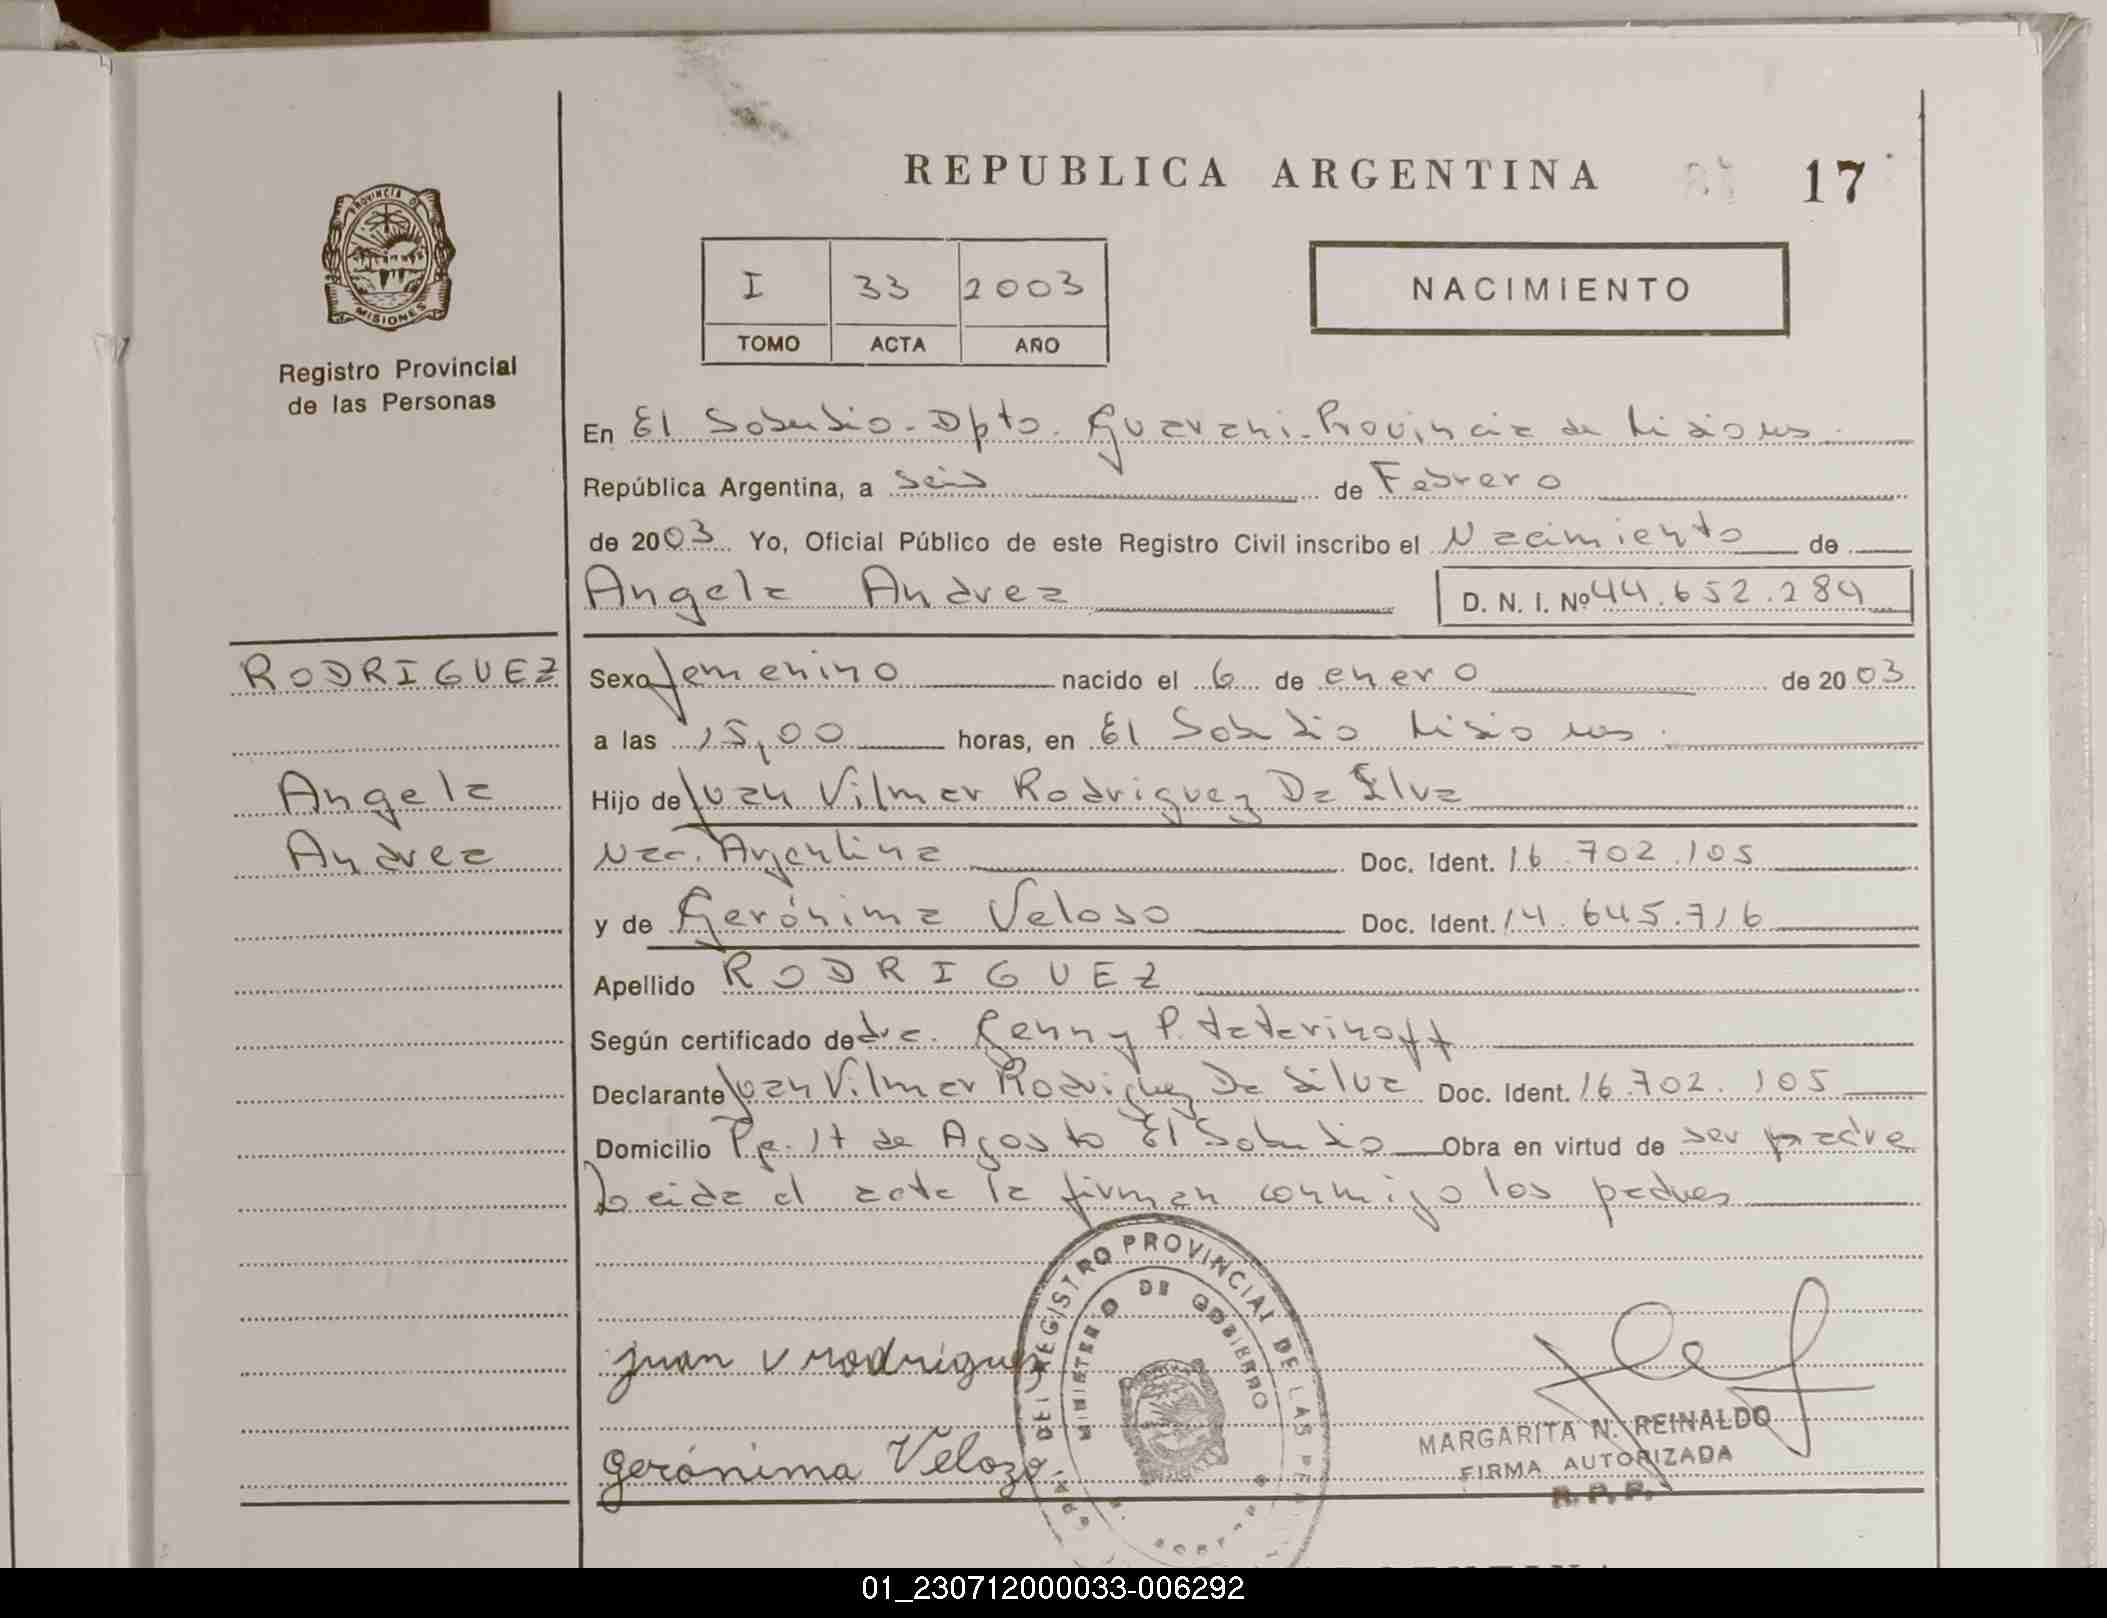 REPUBLICA ARGENTINA 17
PROVINCIA D
MISIONES
Registro Provincial
de las Personas
I 33 2003
TOMO ACTA AÑO
NACIMIENTO
En El Soberbio - Dpto. Guarani - Provincia de Misiones.
República Argentina, a seis de Febrero
de 2003 Yo, Oficial Público de este Registro Civil inscribo el Nacimiento de
Angela Andrea D. N. I. Nº 44.652.284
RODRIGUEZ
Angela
Andrea
Sexo femenino nacido el 6 de enero de 2003
a las 15,00 horas, en El Soberbio Misiones.
Hijo de Juan Vilmar Rodriguez Da Silva
Nac. Argentina Doc. Ident. 16.702.105
y de Gerónima Veloso Doc. Ident. 14.645.716
Apellido RODRIGUEZ
Según certificado de dra. Genny P.
Declarante Juan Vilmar Rodriguez Da Silva Doc. Ident. 16.702.105
Domicilio Pje. 17 de Agosto El Soberbio Obra en virtud de ser padre
Leida el acta la firman conmigo los padres
juan v rodriguez
gerónima Velozo.
DEL REGISTRO PROVINCIAL DE LAS PE
MINISTERIO DE GOBIERNO
MARGARITA N. REINALDO
FIRMA AUTORIZADA
R. P. P.
01_230712000033-006292